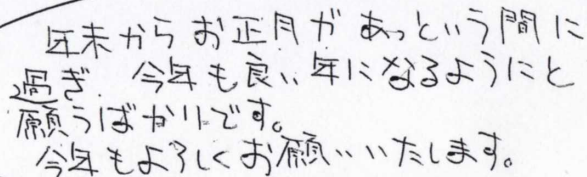 年末からお正月があっという間に
過ぎ、今年も良い年になるようにと
願うばかりです。
今年もよろしくお願いいたします。